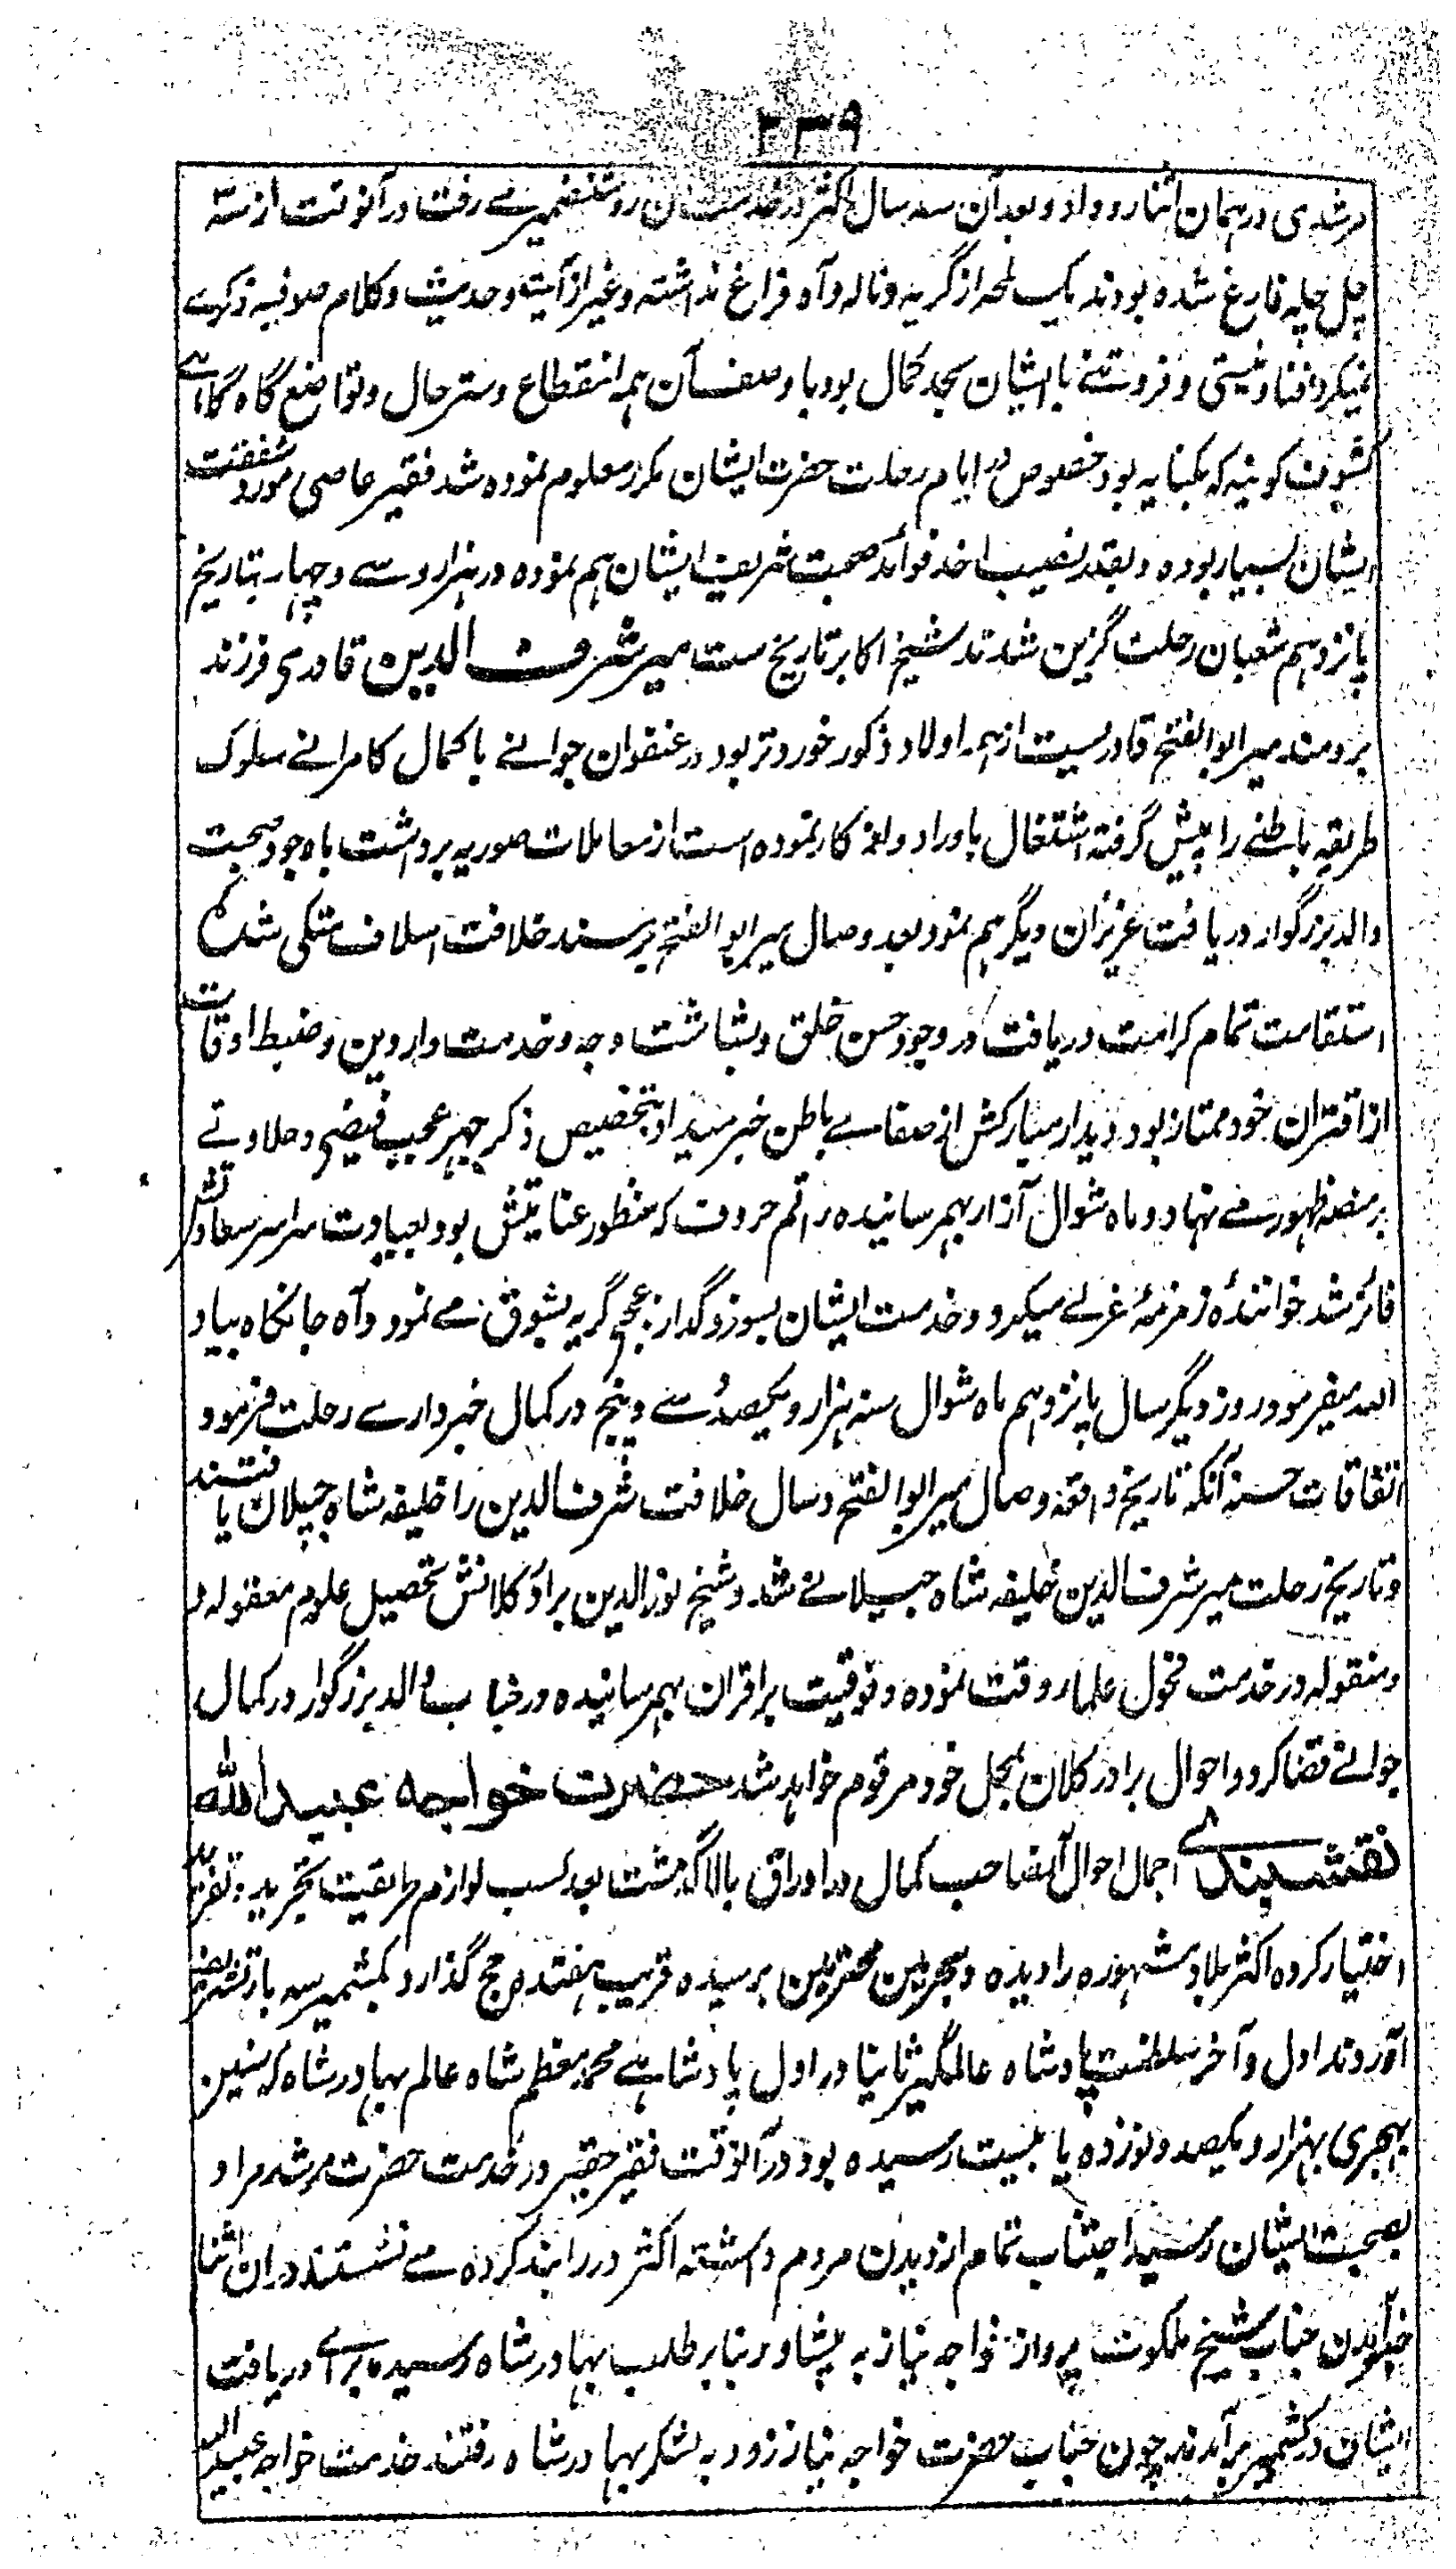 ۲۳۹
مرشدی در همان اثنا رو داد و بعد آن سه سال اکثر در خدمتشان رفت در آنوقت از سته
چل چله فارغ شده بودند یک لمحه از گریه و ناله و آه فراغ نداشته و غیر از آیت و حدیث و کلام صوفیه ذکرے
نمیکرد فنا و نیستی و فروتنے با ایشان بحد کمال بود با وصف آن همه انقطاع و ستر حال و تواضع گاه گاهے
کشوف کونیه که بکنایه بود خصوص در ایام رحلت حضرت ایشان مکرر معلوم نموده شد فقیر عاصی مورد شفقت
ایشان بسیار بوده و بقدر نصیب اخذ فوائد صحبت شریف ایشان هم نموده در هزار و سے و چهار بتاریخ
پانزدهم شعبان رحلت گزین شدند شیخ اکابر تاریخ ست میر شرف الدین قادری فرزند
برومند میر ابوالفتح قادریست از همه اولاد ذکور خوردتر بود در عنفوان جوانے با کمال کامرانے سلوک
طریقه باطنے را پیش گرفته اشتغال باوراد و اذکار نموده است از معاملات صوریه برداشت باوجود صحبت
والد بزرگوار دریافت عزیزان دیگر هم نمود بعد وصال میر ابوالفتح بر مسند خلافت اسلاف متکی شد
استقامت تمام کرامت دریافت در وجود حسن خلق و بشاشت وجه و خدمت واردین و ضبط اوقات
از اقتران خود ممتاز بود دیدار مبارکش از صفاے باطن خبر میداد بتخصیص ذکر جهر عجیب فیضی و حلاوتے
بر منصه ظهور مے نهاد و ماه شوال آزار بهمرسانیده راقم حروف که منظور عنایتش بود بعیادت سراسر سعادتش
فائز شد خوانندۀ زمزمۀ غزلے میکرد و خدمت ایشان بسوز و گداز عجیب گریه بشوق مے نمود و آه جانکاه بیاد
الله میفرمود روز دیگر سال پانزدهم ماه شوال سنه هزار و یکصد و سے و پنج در کمال خبردارے رحلت فرمود
اتفاقات حسنه آنکه تاریخ واقعه وصال میر ابوالفتح و سال خلافت شرف الدین را خلیفه شاه جیلان یافتند
و تاریخ رحلت میر شرف الدین خلیفه شاه جیلانے شد و شیخ نورالدین برادر کلانش تحصیل علوم معقوله و
و منقوله در خدمت فحول علماء وقت نموده و فوقیت بر اقران بهمرسانیده در جناب والد بزرگوار در کمال
جوانے قضا کرد و احوال برادر کلان بمحل خود مرقوم خواهد شد حضرت خواجه عبید الله
نقشبندے اجمال احوال آنصاحب کمال در اوراق بالا گذشت بعد کسب لوازم طریقت تجرید و تفرید
اختیار کرده اکثر بلاد مشهوره را دیده و بحرمین محترمین برسیده قریب هفتده حج گذارد بکشمیر سه بار تشریف
آوردند اول و آخر سلطنت پادشاه عالمگیر ثانیا در اول پادشاهے محمد معظم شاه عالم بهادر شاه که سنین
هجری بهزار و یکصد و نوزده یا بیست رسیده بود در آنوقت فقیر حقیر در خدمت حضرت مرشد مراد
بصحبت ایشان رسید اجتناب تمام از دیدن مردم داشته اکثر در را بند کرده مے نشستند در ان اثنا
خبر آمدن جناب شیخ ملکوت پرواز خواجه نیاز به پشاور بنا بر طلب بهادر شاه رسید براے دریافت
ایشان در کشمیر برآمدند چون جناب حضرت خواجه نیاز زود به لشکر بهادر شاه رفتند خدمت خواجه عبید الله